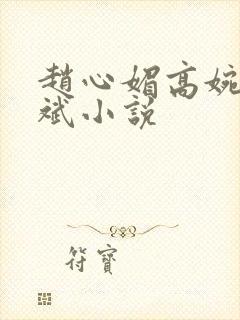 趙心媚高婉
斌小說
符寶